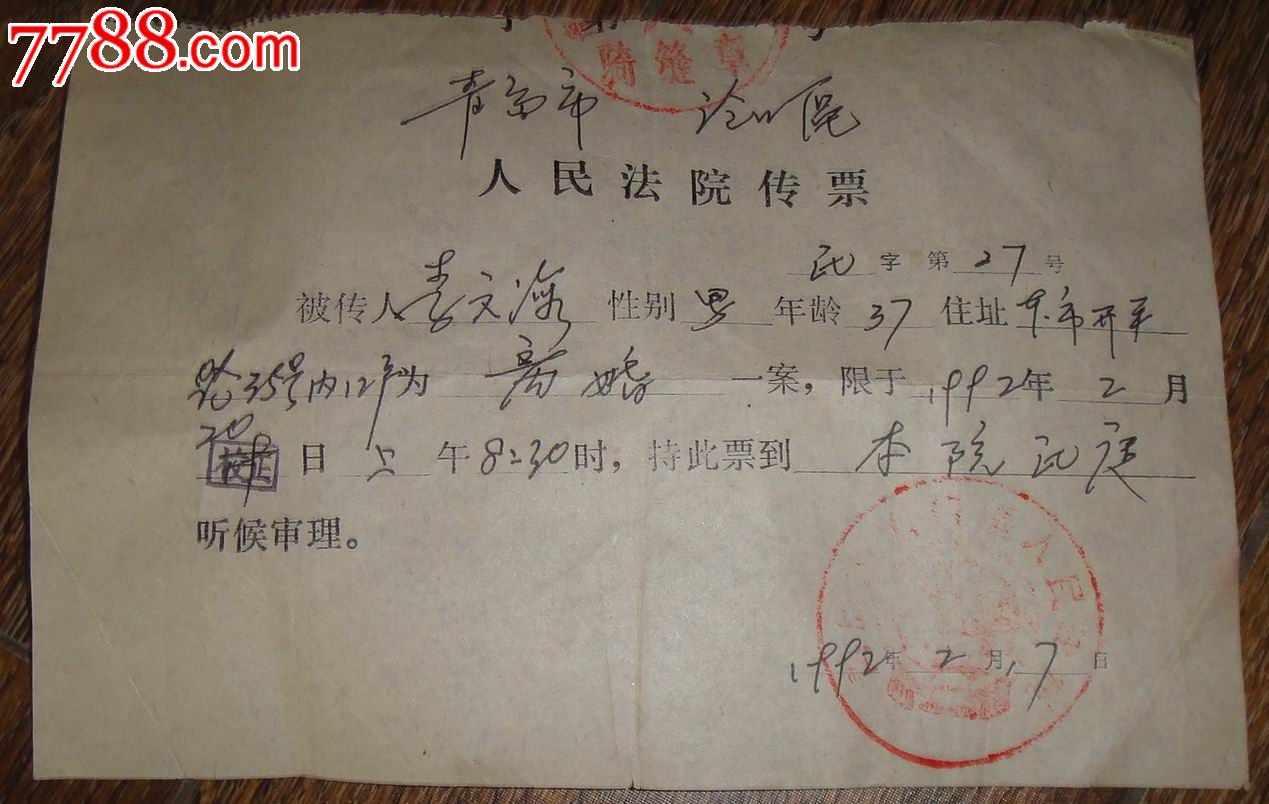 7788.com
骑缝章
青岛市
人民法院传票
民字第27号
被传人 李文海 性别 男 年龄 37 住址 本市开平
路35号内12户为 离婚 一案，限于1992年2月
20日上午8:30时，持此票到 本院民庭
听候审理。
1992年2月17日